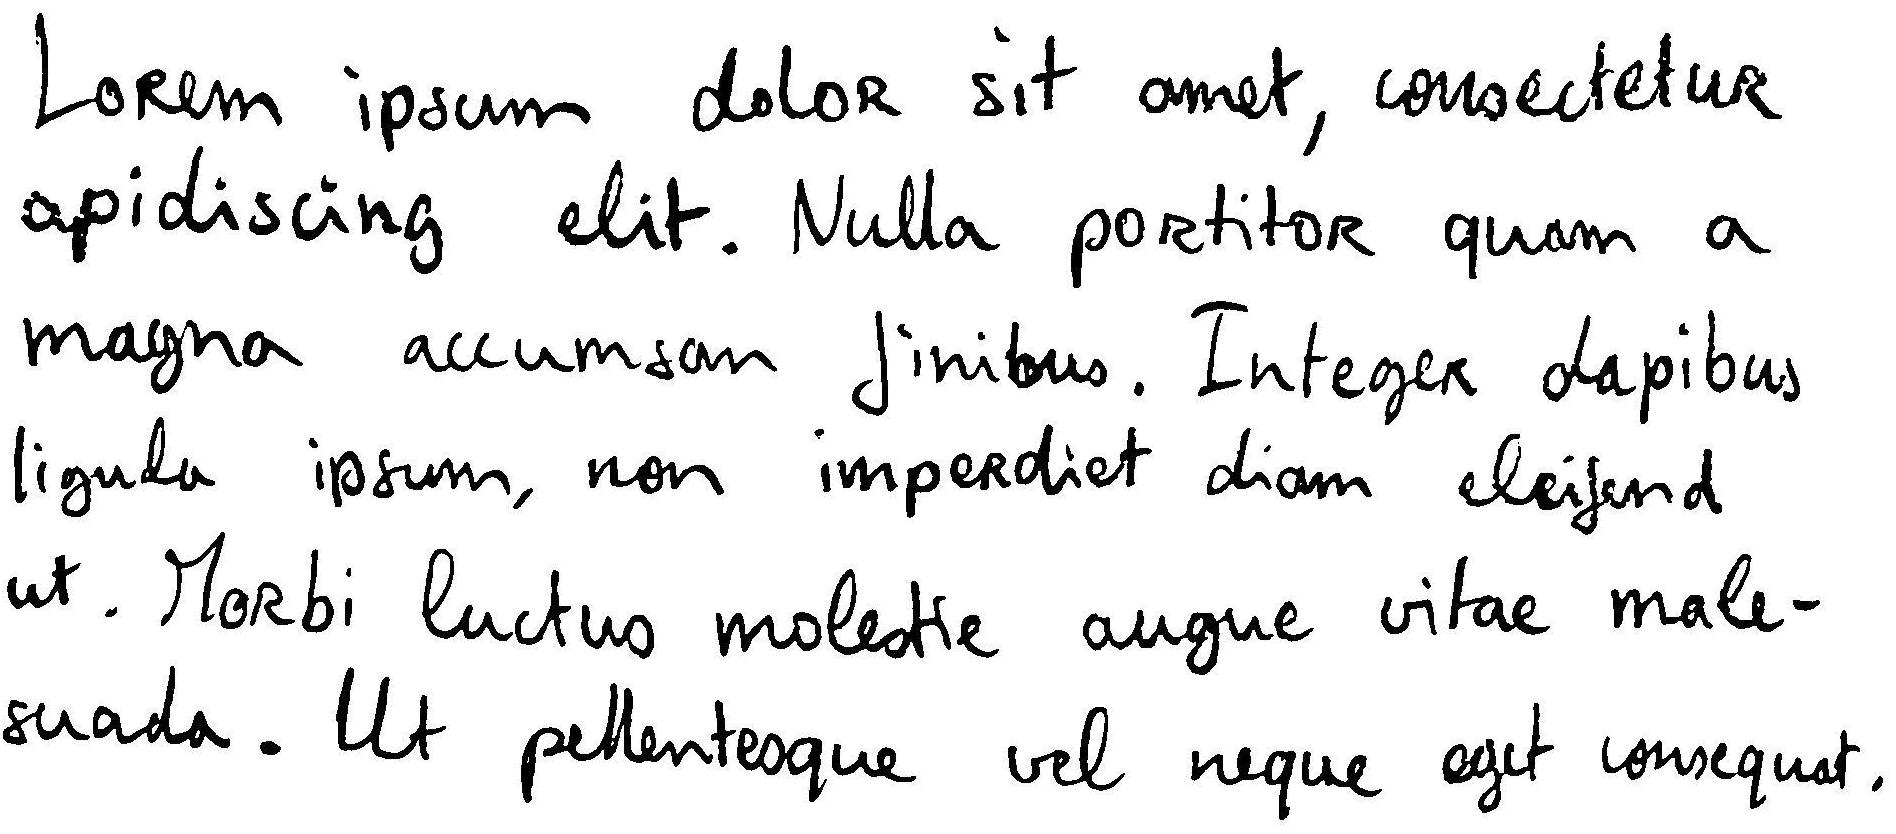 Lorem ipsum dolor sit amet, consectetur
apidiscing elit. Nulla portitor quam a
magna accumsan finibus. Integer dapibus
ligula ipsum, non imperdiet diam eleifend
ut. Morbi luctus molestie augue vitae male-
suada. Ut pellentesque vel neque eget consequat.